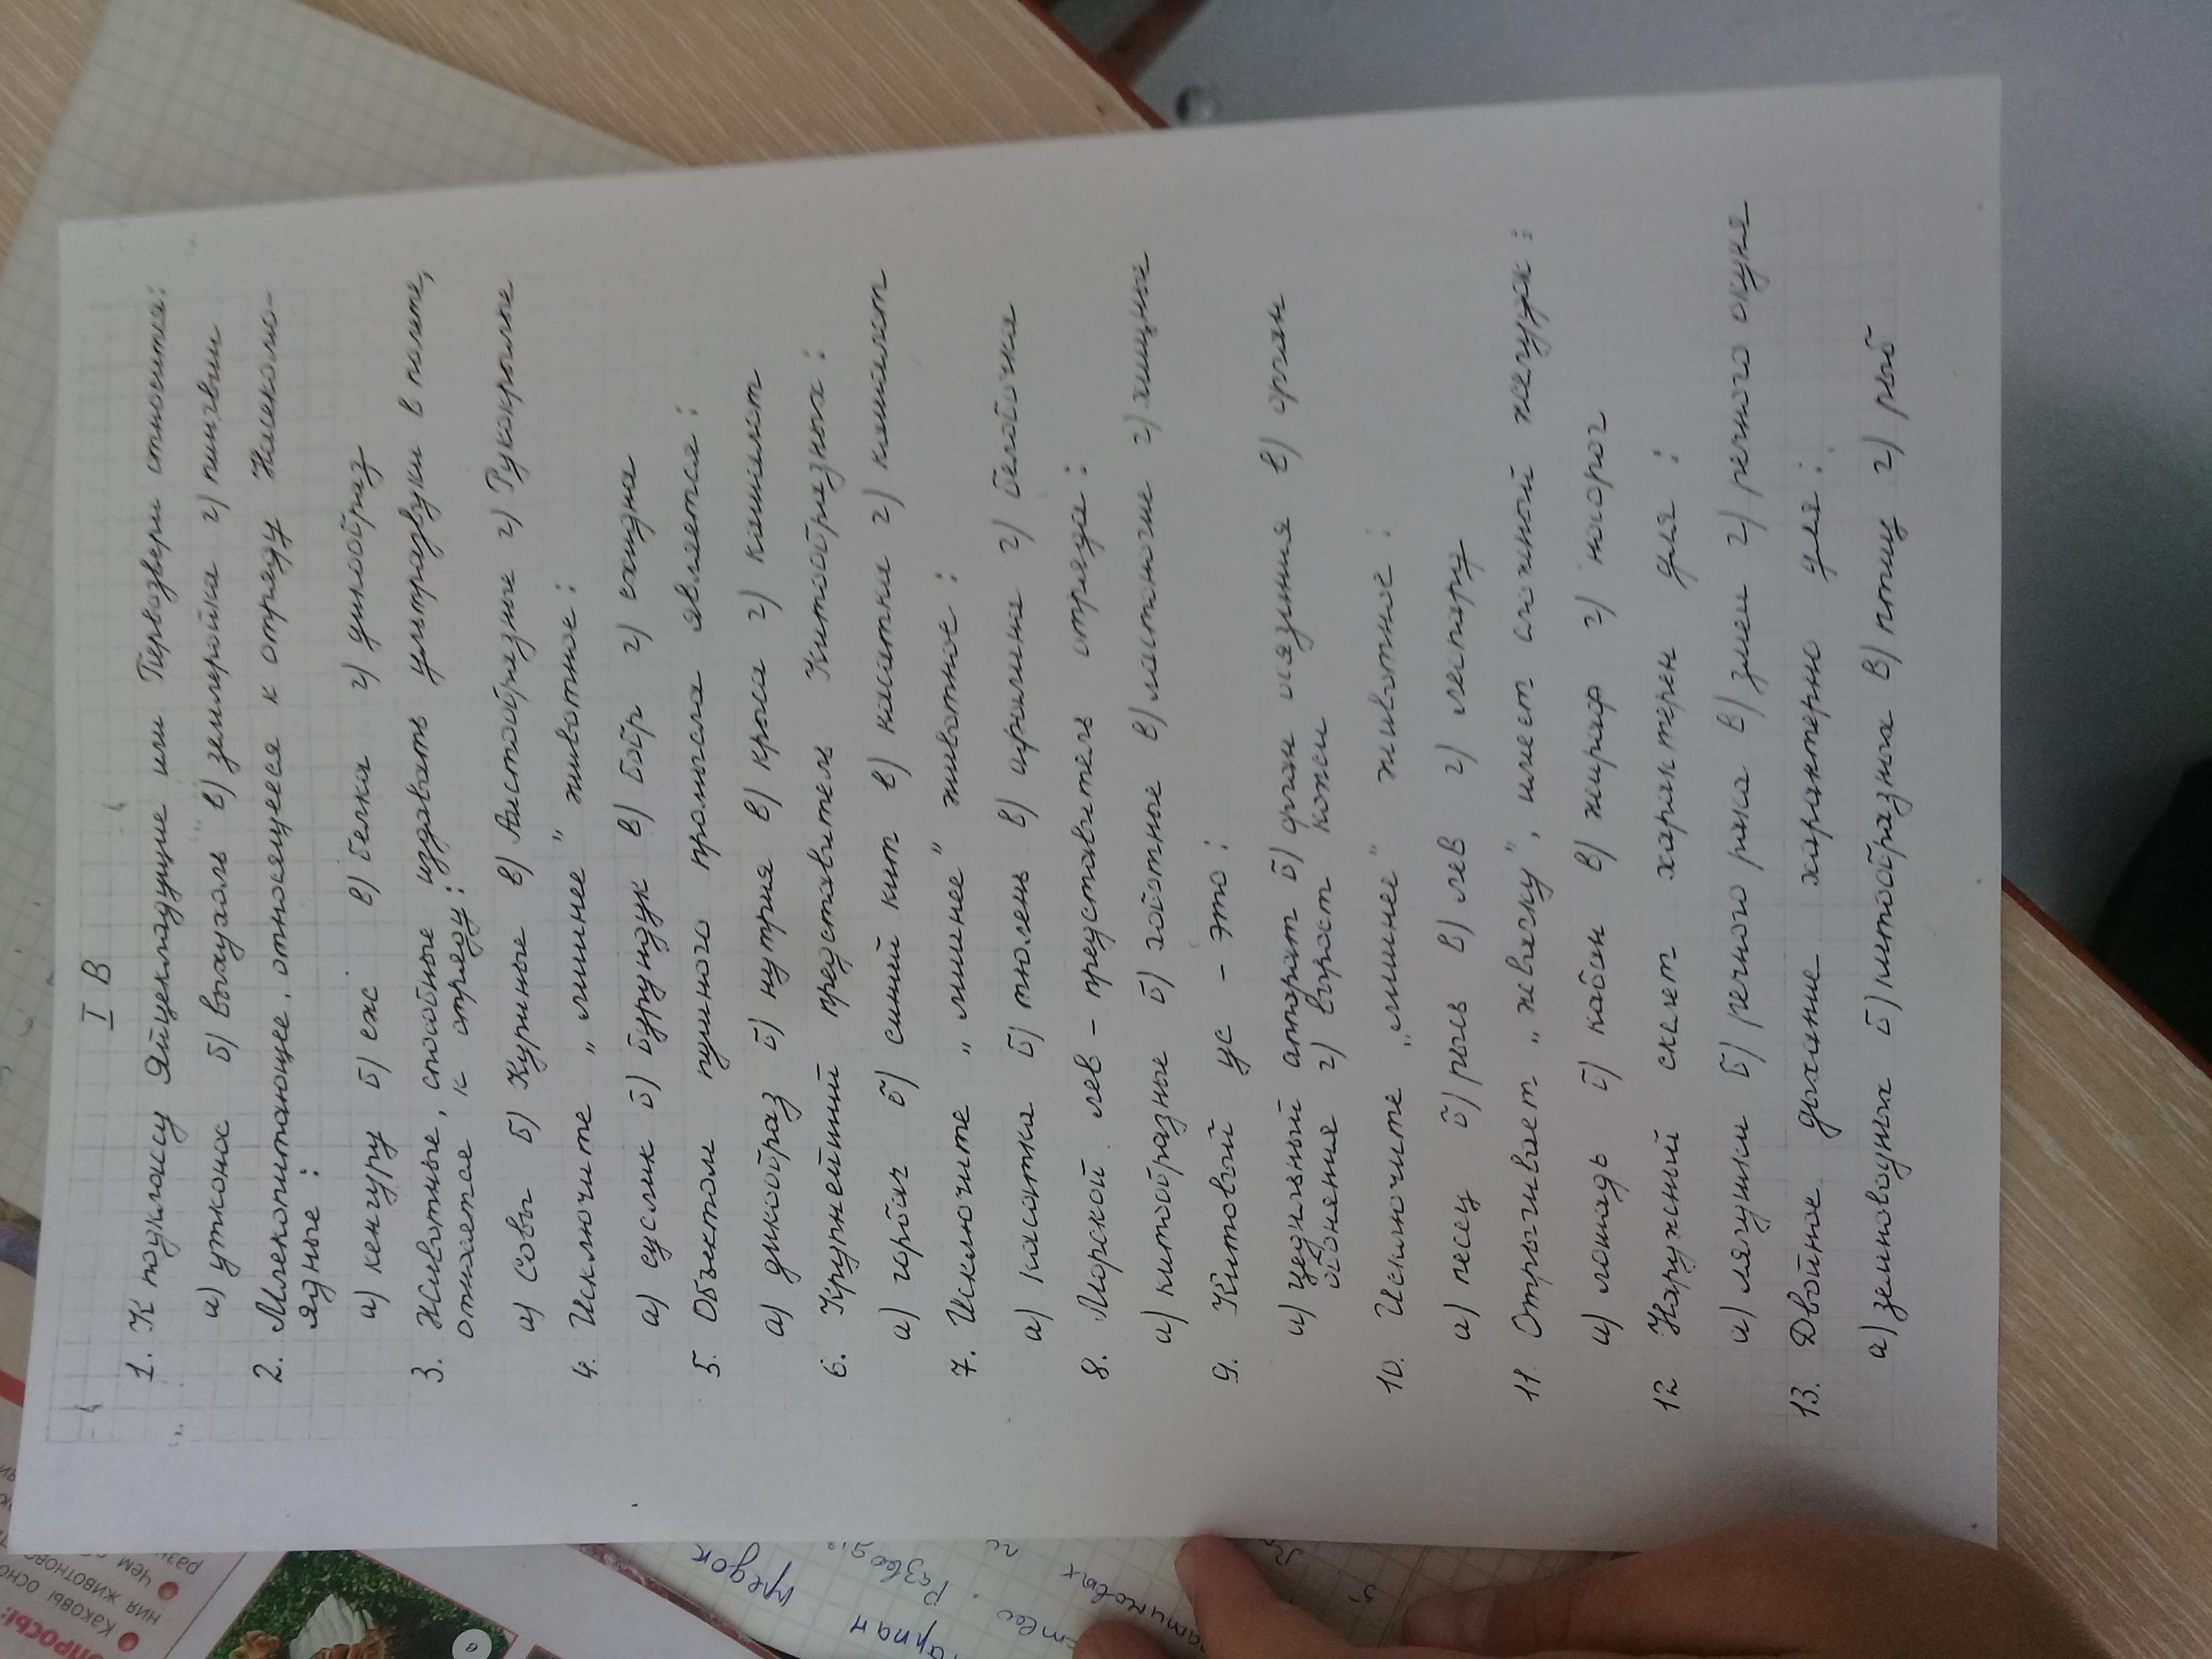 I В
1. К подклассу Яйцекладущие или Первозвери относится:
а) утконос б) выхухоль в) землеройка г) пингвин
2. Млекопитающее, относящееся к отряду Насекомо-
ядные:
а) кенгуру б) еж в) белка г) дикообраз
3. Животные, способные издавать ультразвуки в полете,
относятся к отряду:
а) Совы б) Куриные в) Аистообразные г) Рукокрылые
4. Исключите „лишнее" животное:
а) суслик б) бурундук в) бобр г) ехидна
5. Объектом пушного промысла является:
а) дикообраз б) нутрия в) крыса г) кашалот
6. Крупнейший представитель Китообразных:
а) горбач б) синий кит в) касатка г) кашалот
7. Исключите „лишнее" животное:
а) касатка б) тюлень в) афалина г) белобочка
8. Морской лев - представитель отряда:
а) китообразные б) хоботные в) ластоногие г) хищные
9. Китовый ус - это:
а) цедильный аппарат б) орган осязания в) орган
обоняния г) вырост кожи
10. Исключите „лишнее" животное:
а) песец б) рысь в) лев г) леопард
11. Отрыгивает „жвачку", имеет сложный желудок:
а) лошадь б) кабан в) жираф г) носорог
12. Наружный скелет характерен для:
а) лягушки б) речного рака в) змеи г) речного окуня
13. Двойное дыхание характерно для:
а) земноводных б) китообразных в) птиц г) рыб
вопросы:
Каковы
ния
Чем
в
предок
Развод